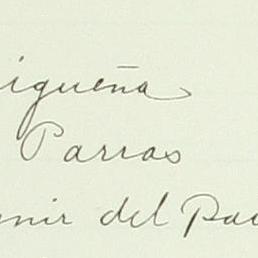 igueña
Parras
enir del Pac